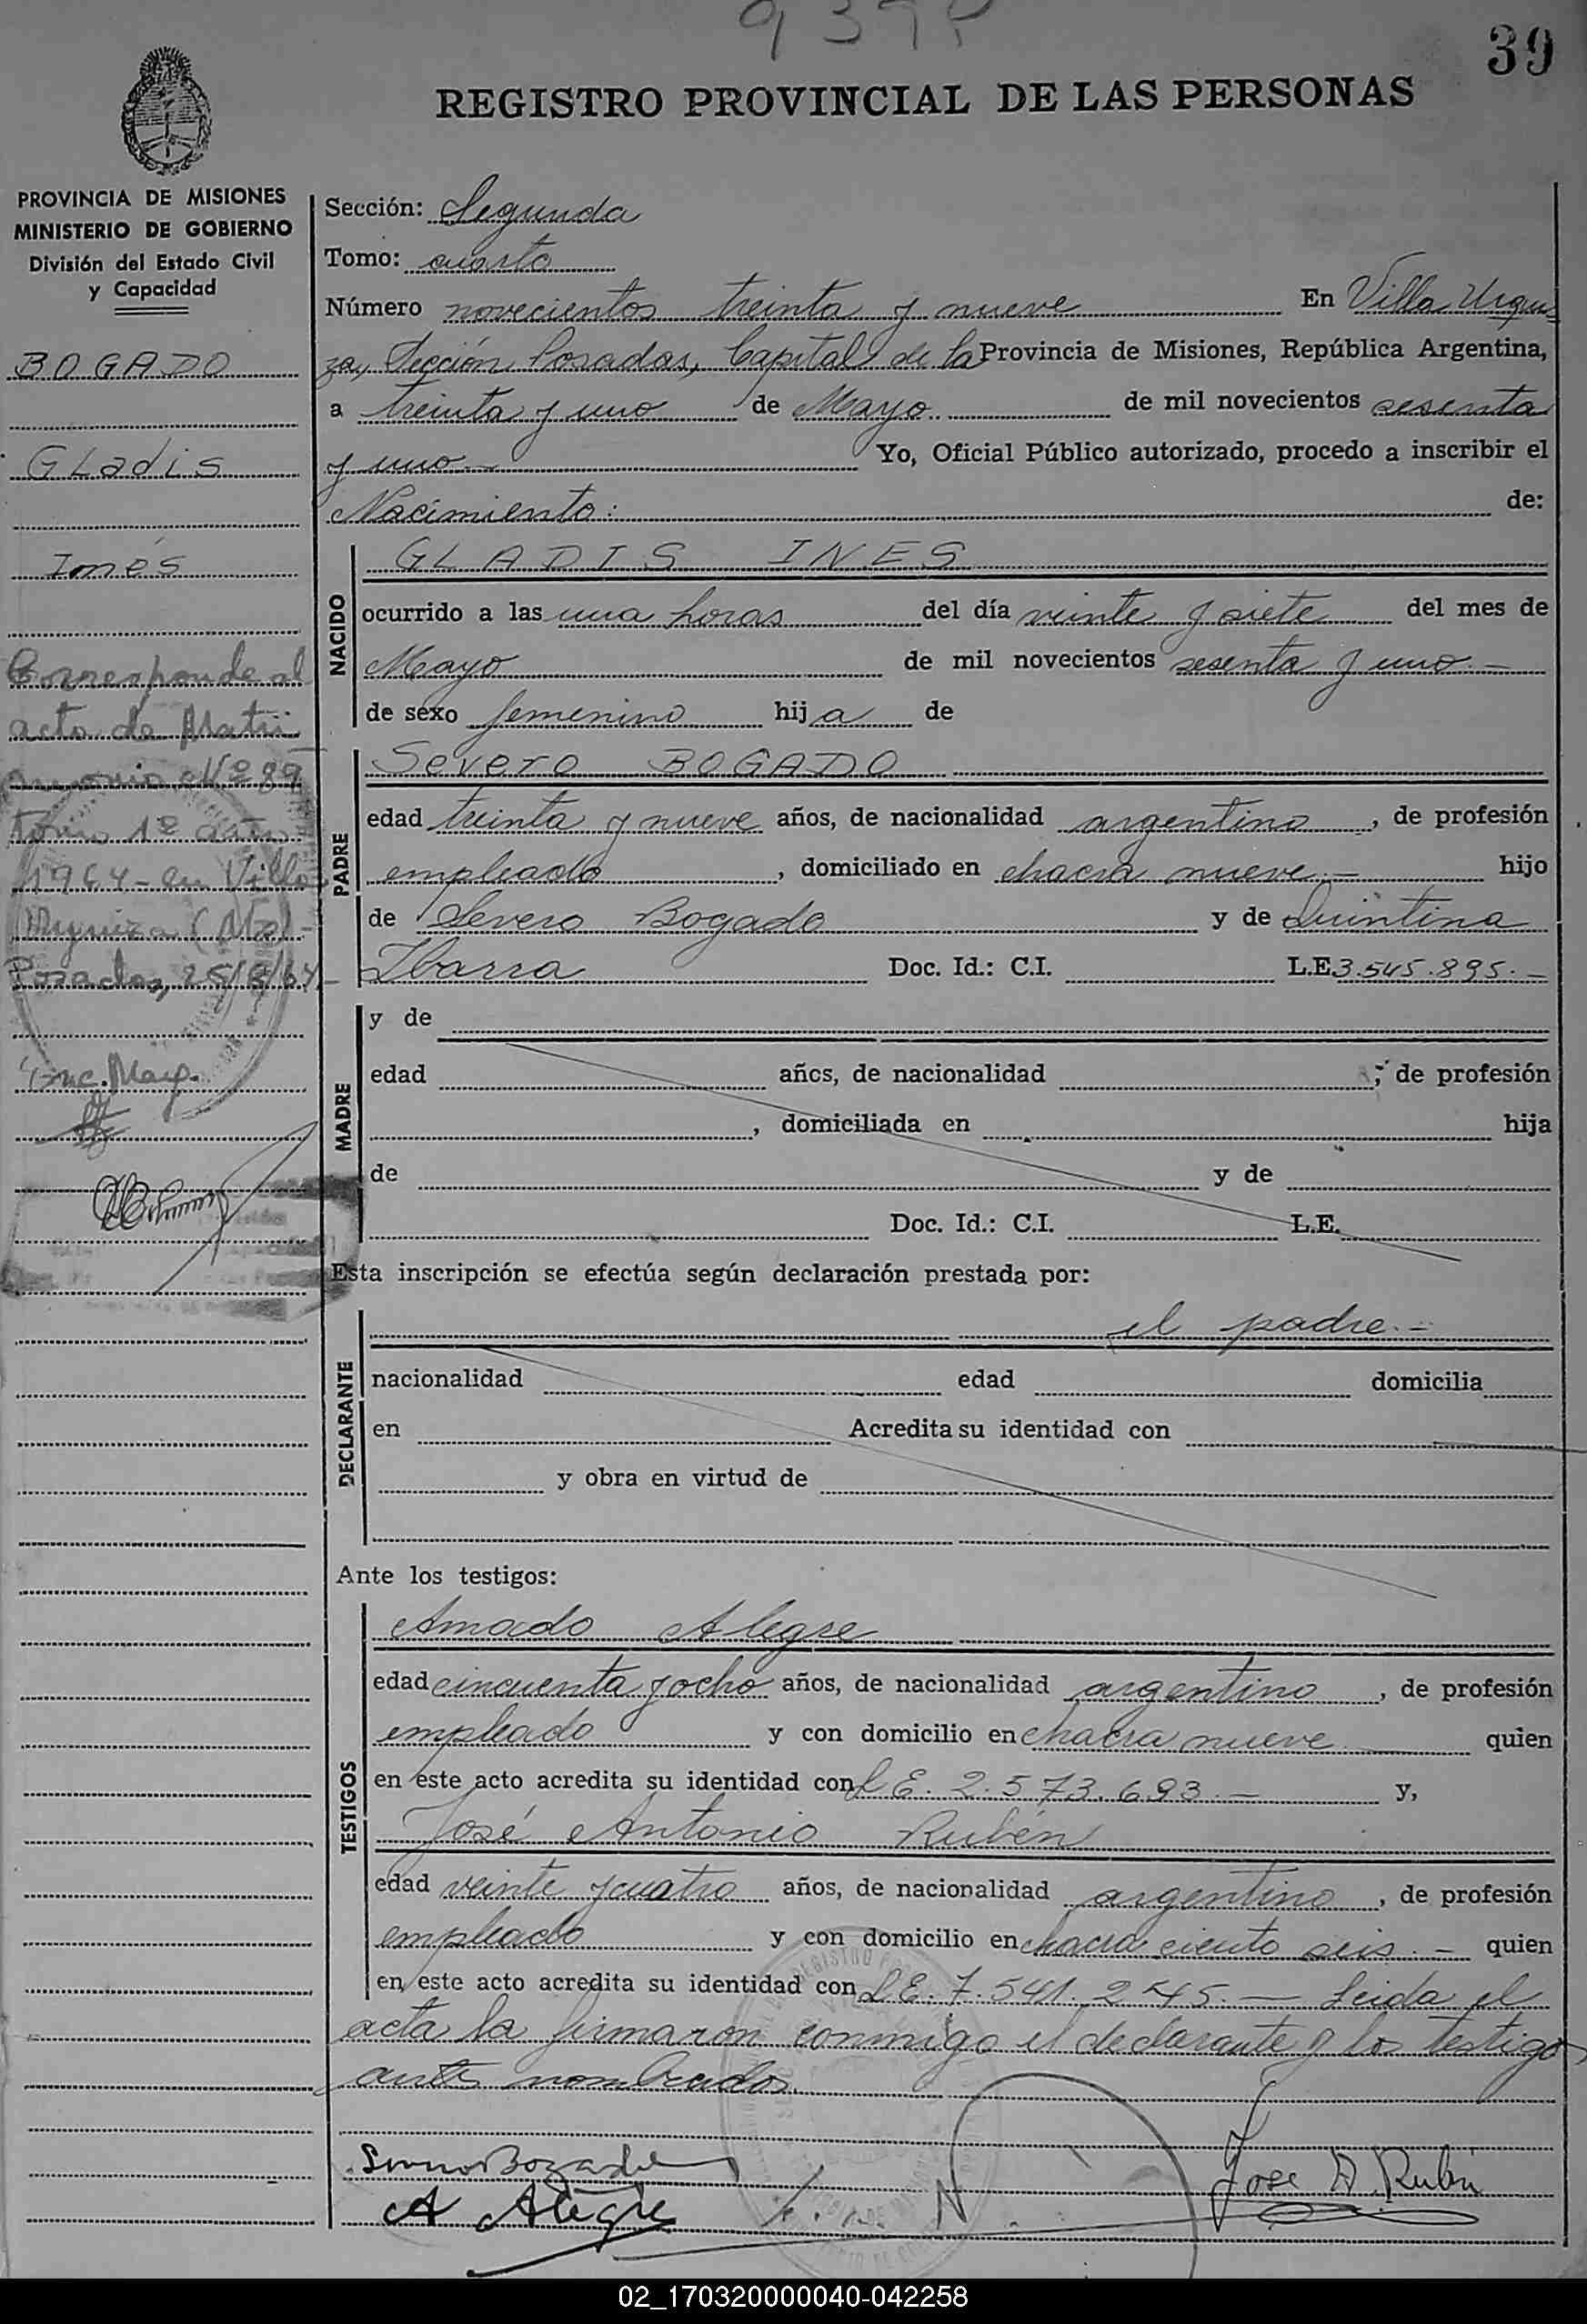 939
39
REGISTRO PROVINCIAL DE LAS PERSONAS
PROVINCIA DE MISIONES
MINISTERIO DE GOBIERNO
División del Estado Civil
y Capacidad
BOGADO
GLadis
Inés
Corresponde al
acta de Matri
monio Nº 89
tomo 1º año
1964 - en Villa
Urquiza (Mz) -
Posadas, 25/8/64 -
Sección: Segunda
Tomo: cuarto
Número novecientos treinta y nueve En Villa Urqui=
za, Sección Posadas, Capital de la Provincia de Misiones, República Argentina,
a treinta y uno de Mayo de mil novecientos sesenta
y uno.- Yo, Oficial Público autorizado, procedo a inscribir el
Nacimiento: de:
NACIDO
GLADIS INES
ocurrido a las una horas del día veinte y siete del mes de
Mayo de mil novecientos sesenta y uno.-
de sexo femenino hija de
PADRE
Severo BOGADO
edad treinta y nueve años, de nacionalidad argentino, de profesión
empleado, domiciliado en chacra nueve.- hijo
de Severo Bogado y de Quintina
Ibarra Doc. Id.: C.I. L.E 3.545.895.-
MADRE
y de
edad años, de nacionalidad , de profesión
, domiciliada en hija
de y de
Doc. Id.: C.I. L.E.
Esta inscripción se efectúa según declaración prestada por:
DECLARANTE
el padre.-
nacionalidad edad domicilia
en Acredita su identidad con
y obra en virtud de
Ante los testigos:
TESTIGOS
Amado Alegre
edad cincuenta y ocho años, de nacionalidad argentino, de profesión
empleado y con domicilio en chacra nueve quien
en este acto acredita su identidad con L.E. 2.573.693.- y,
José Antonio Rubén
edad veinte y cuatro años, de nacionalidad argentino, de profesión
empleado y con domicilio en chacra ciento seis.- quien
en este acto acredita su identidad con L.E. 7.541.245.- Leida el
acta la firmaron conmigo el declarante y los testigos
antes nombrados.
Severo Bogado
A Alegre
Jose A. Rubén
02_170320000040-042258